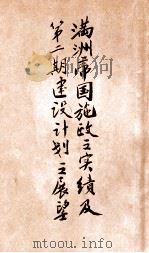 满洲帝国施政之实绩及
第二期建设计划之展望
mtoou.info